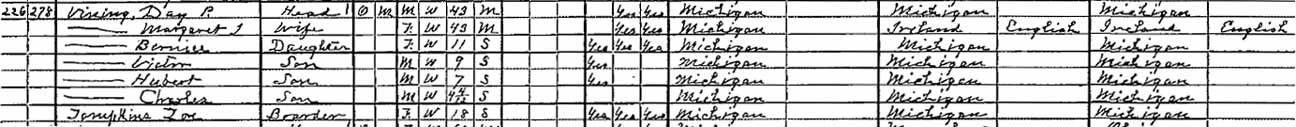 226 278 Vining, Day P. Head 1 O M M W 43 M Yes Yes Michigan Michigan Michigan
—— Margaret I Wife F W 43 M Yes Yes Michigan Ireland English Ireland English
—— Bernice Daughter F W 11 S Yes Yes Yes Michigan Michigan Michigan
—— Victor Son M W 9 S Yes Michigan Michigan Michigan
—— Hubert Son M W 7 S Yes Michigan Michigan Michigan
—— Charles Son M W S Michigan Michigan Michigan
Tompkins Zoe Boarder F W 18 S Yes Yes Yes Michigan Michigan Michigan